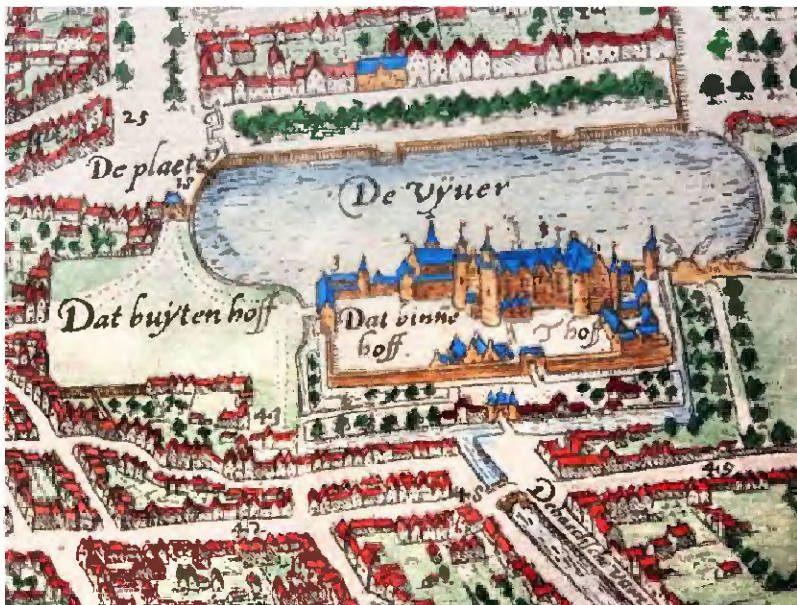 25
De plaets
De Vÿuer
Dat buÿten hoff
Dat binne
hoff
T hoff
43
49
48
42